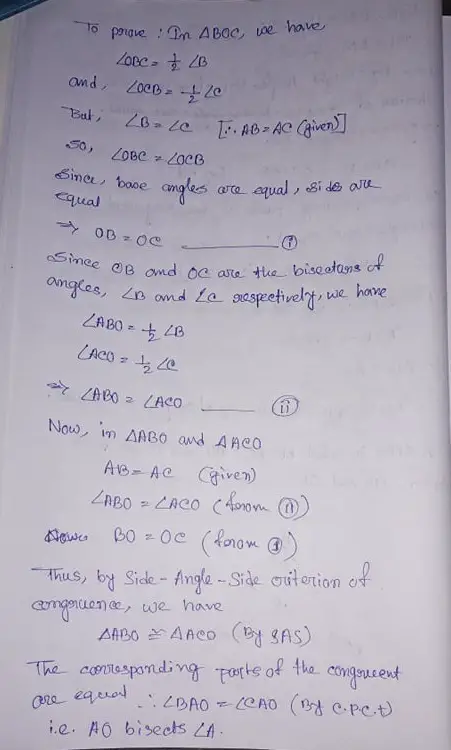 To prove : In ΔBOC, we have
∠OBC = 1/2 ∠B
and, ∠OCB = 1/2 ∠C
But, ∠B = ∠C [∵ AB = AC (given)]
So, ∠OBC = ∠OCB
Since, base angles are equal, sides are
equal
⇒ OB = OC ______ (i)
Since OB and OC are the bisectors of
angles, ∠B and ∠C respectively, we have
∠ABO = 1/2 ∠B
∠ACO = 1/2 ∠C
⇒ ∠ABO = ∠ACO ______ (ii)
Now, in ΔABO and ΔACO
AB = AC (given)
∠ABO = ∠ACO (from (ii))
BO = OC (from (i))
Thus, by Side-Angle-Side criterion of
congruence, we have
ΔABO ≅ ΔACO (By SAS)
The corresponding parts of the congruent
are equal ∴ ∠BAO = ∠CAO (By C.P.C.t)
i.e. AO bisects ∠A.